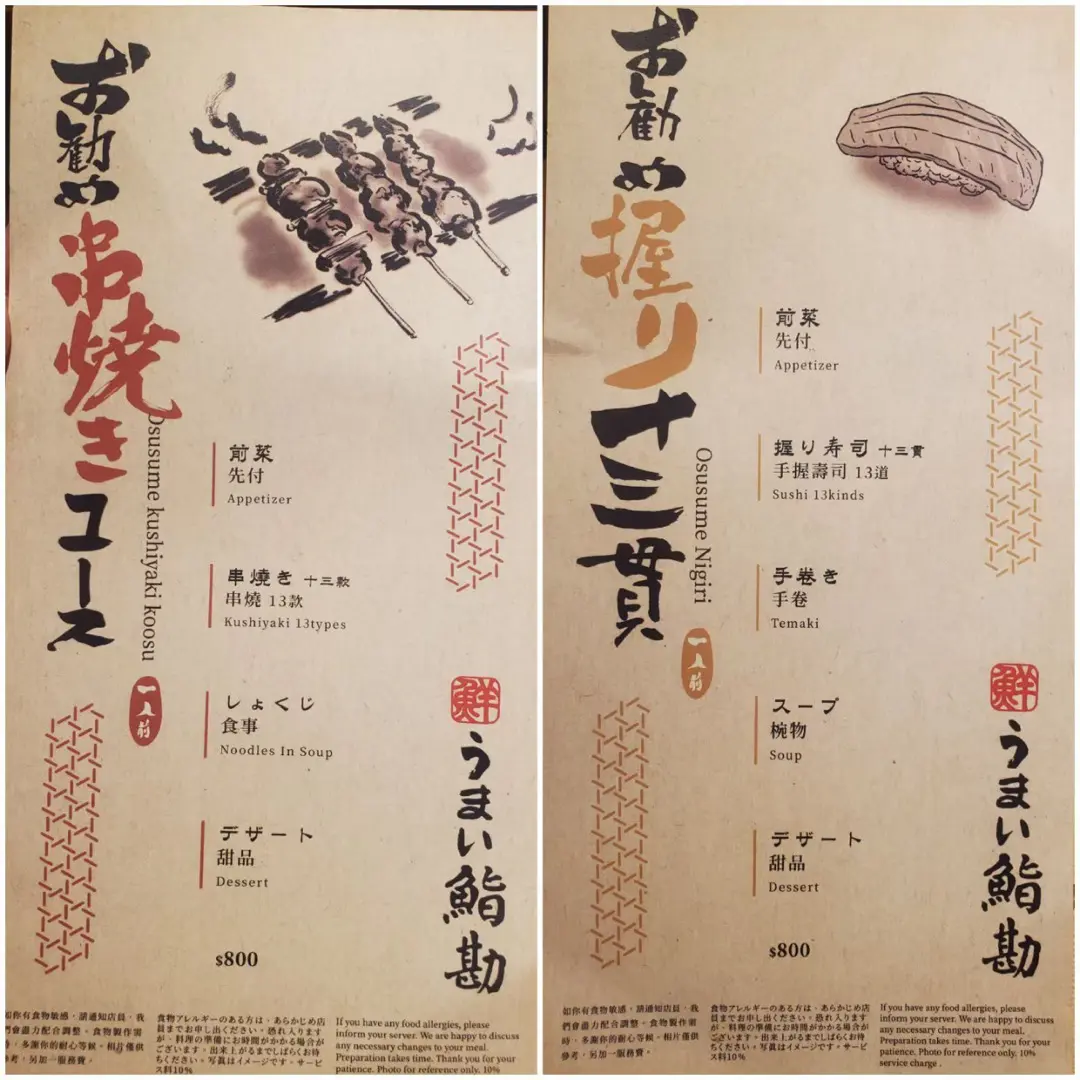 お勧め串焼きコース
Osusume kushiyaki koosu
一人前
前菜
先付
Appetizer
串燒き 十三款
串燒 13款
Kushiyaki 13types
しょくじ
食事
Noodles In Soup
デザート
甜品
Dessert
$800
鮮
うまい鮨勘
如你有食物敏感，請通知店員，我
們會盡力配合調整。食物製作需
時，多謝你的耐心等候。相片僅供
參考，另加一服務費。
食物アレルギーのある方は、あらかじめ店
員までお申し出ください。恐れ入ります
が、料理の準備にお時間がかかる場合が
ございます。出来上がるまでしばらくお待
ちください。写真はイメージです。サービ
ス料10%
If you have any food allergies, please
inform your server. We are happy to discuss
any necessary changes to your meal.
Preparation takes time. Thank you for your
patience. Photo for reference only. 10%
お勧め握り十三貫
Osusume Nigiri
一人前
前菜
先付
Appetizer
握り寿司 十三貫
手握壽司 13道
Sushi 13kinds
手卷き
手卷
Temaki
スープ
椀物
Soup
デザート
甜品
Dessert
$800
鮮
うまい鮨勘
如你有食物敏感，請通知店員，我
們會盡力配合調整。食物製作需
時，多謝你的耐心等候。相片僅供
參考，另加一服務費。
食物アレルギーのある方は、あらかじめ店
員までお申し出ください。恐れ入ります
が、料理の準備にお時間がかかる場合が
ございます。出来上がるまでしばらくお待
ちください。写真はイメージです。サービ
ス料10%
If you have any food allergies, please
inform your server. We are happy to discuss
any necessary changes to your meal.
Preparation takes time. Thank you for your
patience. Photo for reference only. 10%
service charge .